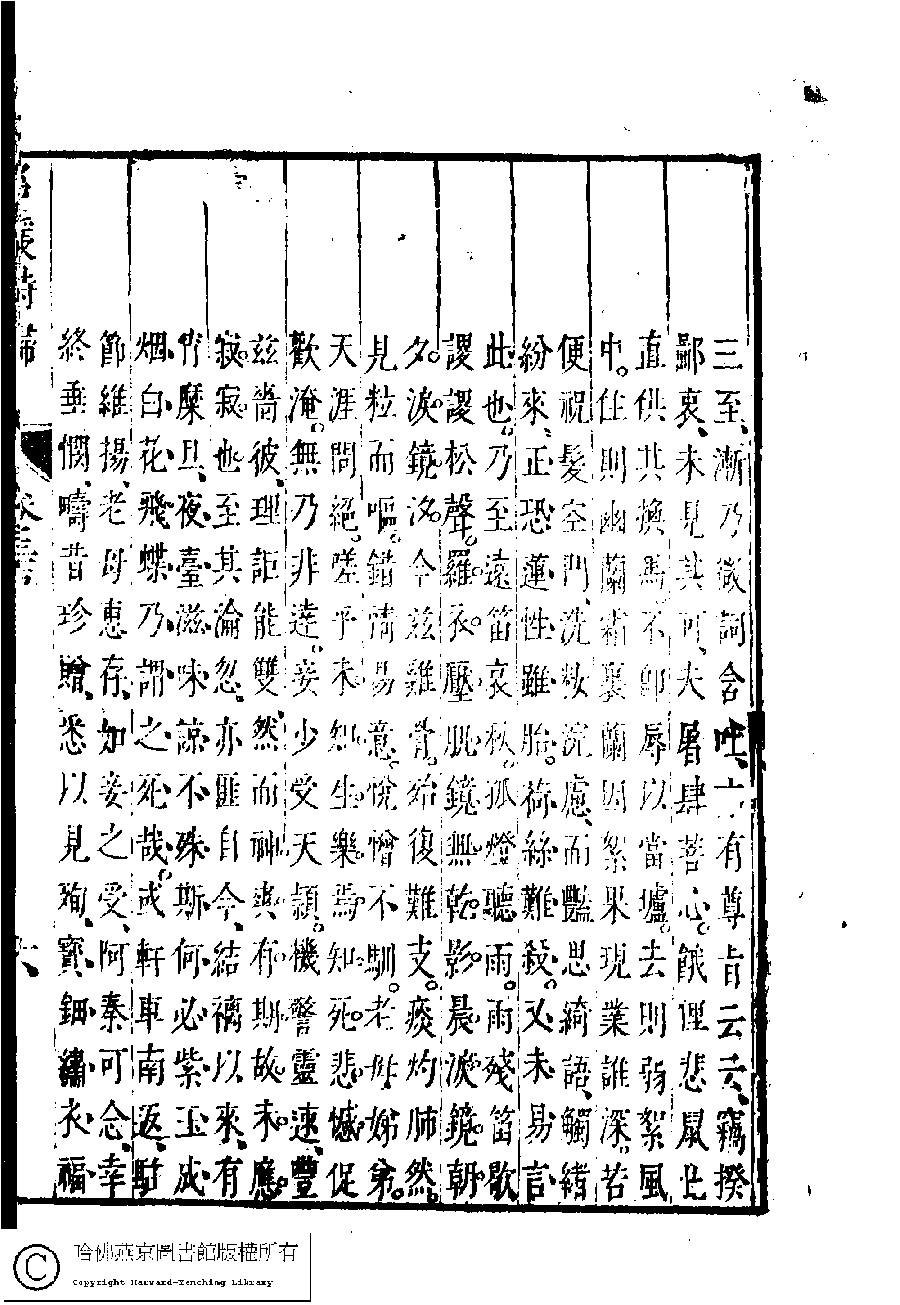 三至漸乃微詞含吐亠有尊旨云云竊揆
鄙衷未見其可夫屠肆菩心餓狸悲鼠此
直供其換馬不卽辱以當壚去則弱絮風
中住則幽蘭霜裏蘭因絮果現業誰深若
便祝髮空門洗妝浣慮而豔思綺語觸緒
紛來正恐蓮性雖胎荷絲難殺又未易言
此也乃至遠笛哀秋孤燈聽雨雨殘笛歇
謖謖松聲羅衣壓肌鏡無乾影晨淚鏡朝
夕淚鏡汐今茲雞骨殆復難支痰灼肺然
見粒而嘔錯情易意悅憎不馴老母娣弟
天涯問絕嗟乎未知生樂焉知死悲憾促
歡淹無乃非達妾少受天穎機警靈速豐
茲嗇彼理詎能雙然而神爽有期故未應
寂寂也至其淪忽亦匪自今結褵以來有
宵靡旦夜臺滋味諒不殊斯何必紫玉成
烟白花飛蝶乃謂之死哉或軒車南返駐
節維揚老母惠存如妾之受阿秦可念幸
終垂憫疇昔珍贈悉以見殉寶鈿繡衣福
詩歸
卷三十六
六
哈佛燕京圖書館版權所有
Copyright Harvard-Yenching Library